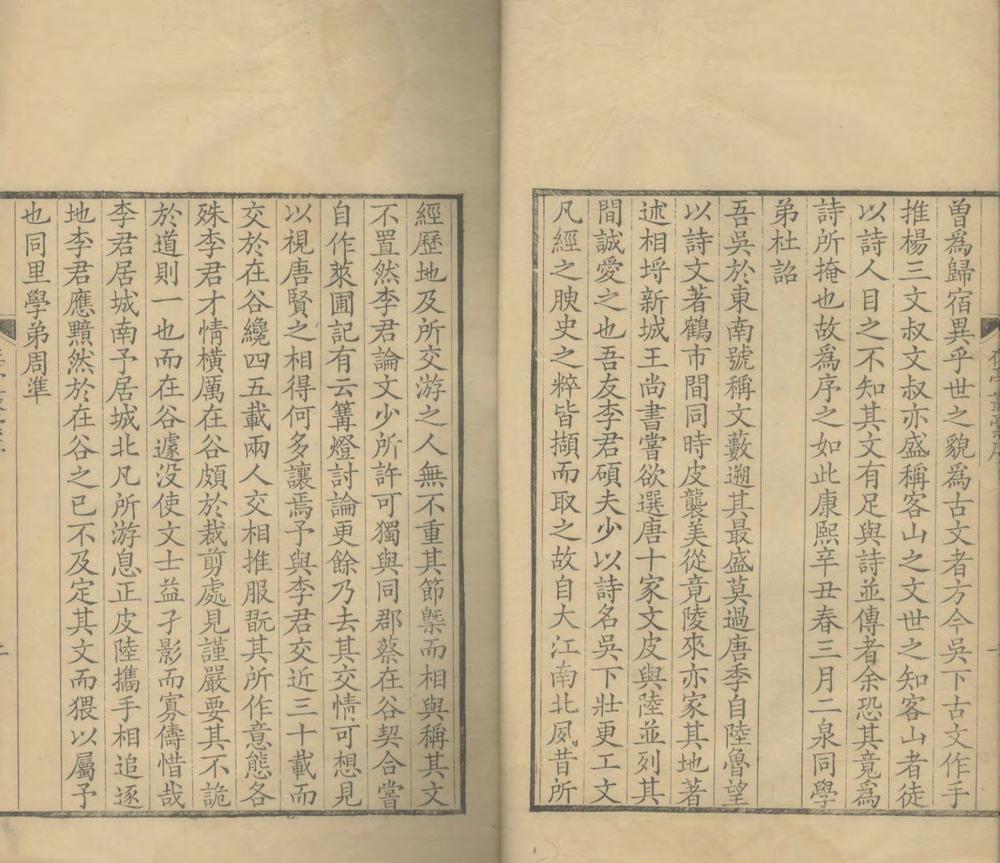 曽爲歸宿異乎世之貌爲古文者方今吳下古文作手
推楊三文叔文叔亦盛稱客山之文世之知客山者徒
以詩人目之不知其文有足與詩並傳者余恐其竟爲
詩所掩也故爲序之如此康熙辛丑春三月二泉同學
弟杜詔
吾吳於東南號稱文藪遡其最盛莫過唐季自陸魯望
以詩文著鶴市間同時皮襲美從竟陵來亦家其地著
述相埒新城王尚書嘗欲選唐十家文皮與陸並列其
間誠愛之也吾友李君碩夫少以詩名吳下壯更工文
凡經之腴史之粹皆擷而取之故自大江南北夙昔所
經歷地及所交游之人無不重其節槩而相與稱其文
不置然李君論文少所許可獨與同郡蔡在谷契合嘗
自作萊圃記有云篝燈討論更餘乃去其交情可想見
以視唐賢之相得何多讓焉予與李君交近三十載而
交於在谷纔四五載兩人交相推服翫其所作意態各
殊李君才情橫厲在谷頗於裁剪處見謹嚴要其不詭
於道則一也而在谷遽没使文士益孑影而寡儔惜哉
李君居城南予居城北凡所游息正皮陸攜手相追逐
地李君應黯然於在谷之已不及定其文而猥以屬予
也同里學弟周準